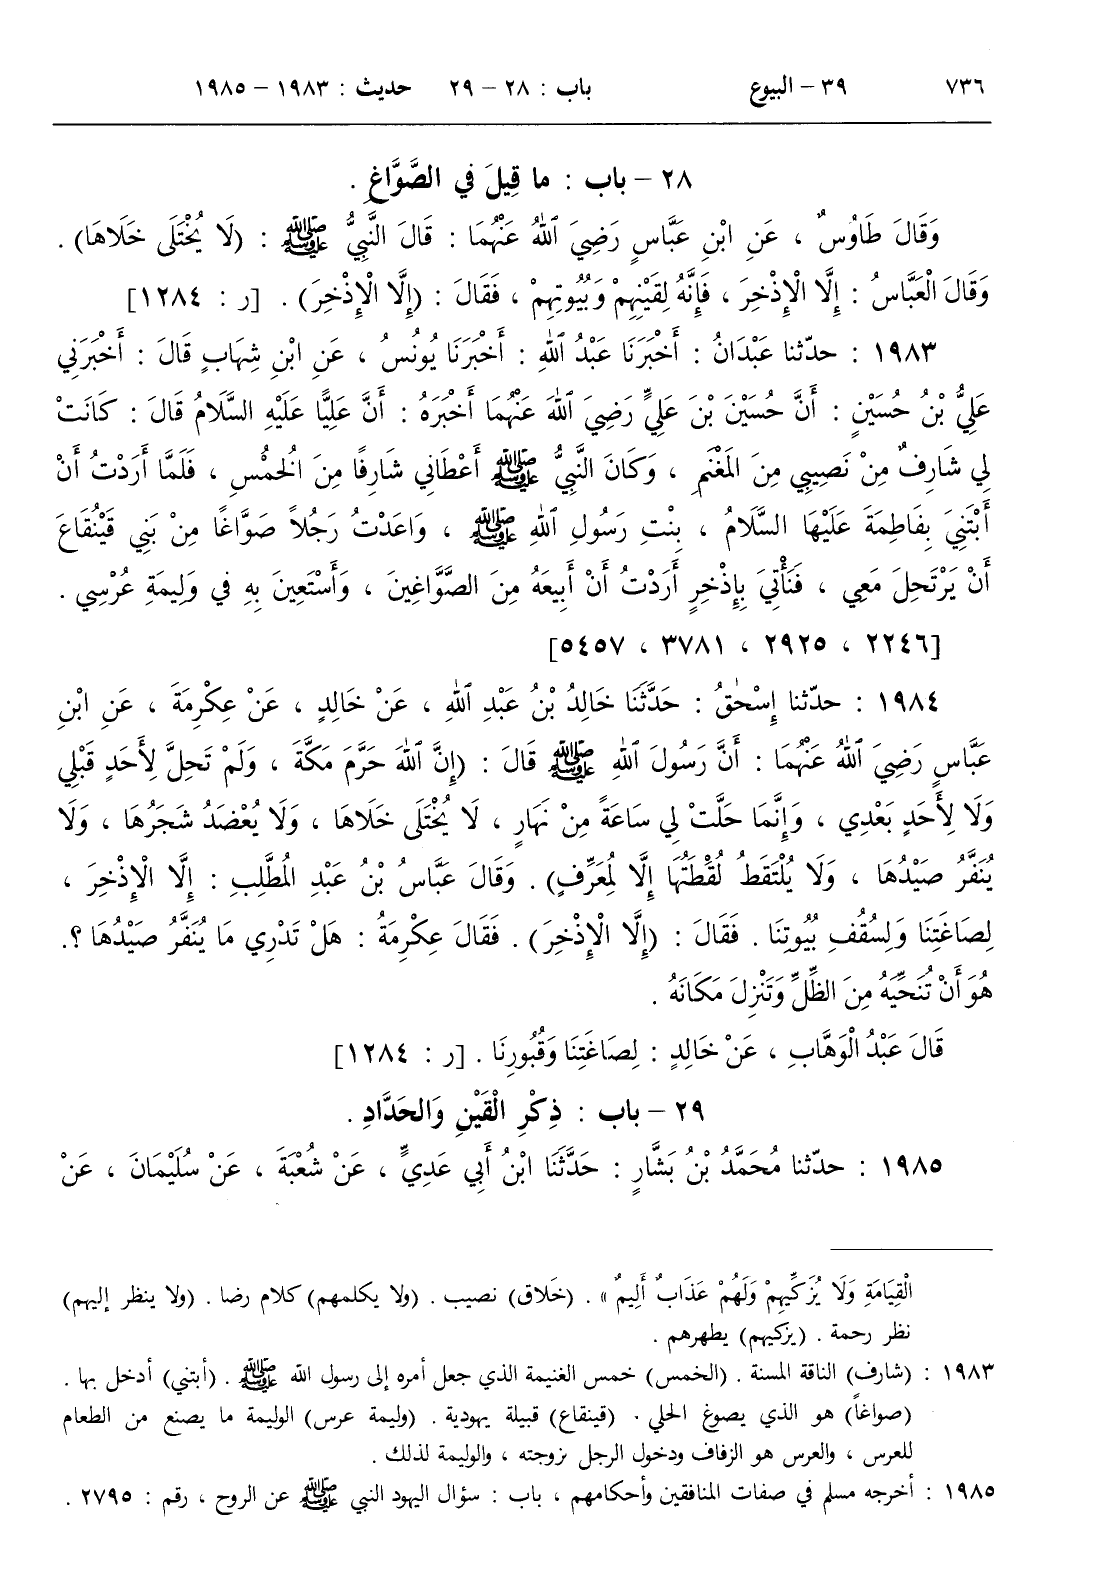 ٧٣٦ ٣٩ - البيوع باب : ٢٨ - ٢٩ حديث : ١٩٨٣ - ١٩٨٥
٢٨ - باب : ما قِيلَ في الصَّوَّاغِ .
وَقَالَ طَاوُسٌ ، عَنِ ابْنِ عَبَّاسٍ رَضِيَ ٱللهُ عَنْهُمَا : قَالَ النَّبِيُّ ﷺ : (لَا يُخْتَلَى خَلَاهَا) .
وَقَالَ الْعَبَّاسُ : إِلَّا الْإِذْخِرَ ، فَإِنَّهُ لِقَيْنِهِمْ وَبُيُوتِهِمْ ، فَقَالَ : (إِلَّا الْإِذْخِرَ) . [ر : ١٢٨٤]
١٩٨٣ : حدّثنا عَبْدَانُ : أَخْبَرَنَا عَبْدُ ٱللهِ : أَخْبَرَنَا يُونُسُ ، عَنِ ابْنِ شِهَابٍ قالَ : أَخْبَرَنِي
عَلِيُّ بْنُ حُسَيْنٍ : أَنَّ حُسَيْنَ بْنَ عَلِيٍّ رَضِيَ ٱللهُ عَنْهُمَا أَخْبَرَهُ : أَنَّ عَلِيًّا عَلَيْهِ السَّلَامُ قالَ : كَانَتْ
لِي شارِفٌ مِنْ نَصِيبِي مِنَ المَغْنَمِ ، وَكانَ النَّبِيُّ ﷺ أَعْطَانِي شَارِفًا مِنَ الْخمُسِ ، فَلَمَّا أَرَدْتُ أَنْ
أَبْتَنِيَ بِفَاطِمَةَ عَلَيْهَا السَّلَامُ ، بِنْتِ رَسُولِ ٱللهِ ﷺ ، وَاعَدْتُ رَجُلاً صَوَّاغًا مِنْ بَنِي قَيْنُقَاعَ
أَنْ يَرْتَحِلَ مَعِي ، فَنَأْتِيَ بِإِذْخِرٍ أَرَدْتُ أَنْ أَبِيعَهُ مِنَ الصَّوَّاغِينَ ، وَأَسْتَعِينَ بِهِ في وَلِيمَةِ عُرْسِي .
[٢٢٤٦ ، ٢٩٢٥ ، ٣٧٨١ ، ٥٤٥٧]
١٩٨٤ : حدّثنا إِسْحٰقُ : حَدَّثَنَا خَالِدُ بْنُ عَبْدِ ٱللهِ ، عَنْ خَالِدٍ ، عَنْ عِكْرِمَةَ ، عَنِ ابْنِ
عَبَّاسٍ رَضِيَ ٱللهُ عَنْهُمَا : أَنَّ رَسُولَ ٱللهِ ﷺ قالَ : (إِنَّ ٱللهَ حَرَّمَ مَكَّةَ ، وَلَمْ تَحِلَّ لِأَحَدٍ قَبْلِي
وَلَا لِأَحَدٍ بَعْدِي ، وَإِنَّمَا حَلَّتْ لِي سَاعَةً مِنْ نَهَارٍ ، لَا يُخْتَلَى خَلَاهَا ، وَلَا يُعْضَدُ شَجَرُهَا ، وَلَا
يُنَفَّرُ صَيْدُهَا ، وَلَا يُلْتَقَطُ لُقْطَتُهَا إِلَّا لِمُعَرِّفٍ) . وَقَالَ عَبَّاسُ بْنُ عَبْدِ المُطَّلِبِ : إِلَّا الْإِذْخِرَ ،
لِصَاغَتِنَا وَلِسُقُفِ بُيُوتِنَا . فَقَالَ : (إِلَّا الْإِذْخِرَ) . فَقَالَ عِكْرِمَةُ : هَلْ تَدْرِي مَا يُنَفَّرُ صَيْدُهَا ؟.
هُوَ أَنْ تُنَحِّيَهُ مِنَ الظِّلِّ وَتَنْزِلَ مَكَانَهُ .
قَالَ عَبْدُ الْوَهَّابِ ، عَنْ خَالِدٍ : لِصَاغَتِنَا وَقُبُورِنَا . [ر : ١٢٨٤]
٢٩ - باب : ذِكْرِ الْقَيْنِ وَالحَدَّادِ .
١٩٨٥ : حدّثنا مُحَمَّدُ بْنُ بَشَّارٍ : حَدَّثَنَا ابْنُ أَبِي عَدِيٍّ ، عَنْ شُعْبَةَ ، عَنْ سُلَيْمَانَ ، عَنْ
الْقِيَامَةِ وَلَا يُزَكِّيهِمْ وَلَهُمْ عَذَابٌ أَلِيمٌ » . (خَلاق) نصيب . (ولا يكلمهم) كلام رضا . (ولا ينظر إليهم)
نظر رحمة . (يزكيهم) يطهرهم .
١٩٨٣ : (شارف) الناقة المسنة . (الخمس) خمس الغنيمة الذي جعل أمره إلى رسول الله ﷺ . (أبتني) أدخل بها .
(صواغاً) هو الذي يصوغ الحلي . (قينقاع) قبيلة يهودية . (وليمة عرس) الوليمة ما يصنع من الطعام
للعرس ، والعرس هو الزفاف ودخول الرجل بزوجته ، والوليمة لذلك .
١٩٨٥ : أخرجه مسلم في صفات المنافقين وأحكامهم ، باب : سؤال اليهود النبي ﷺ عن الروح ، رقم : ٢٧٩٥ .